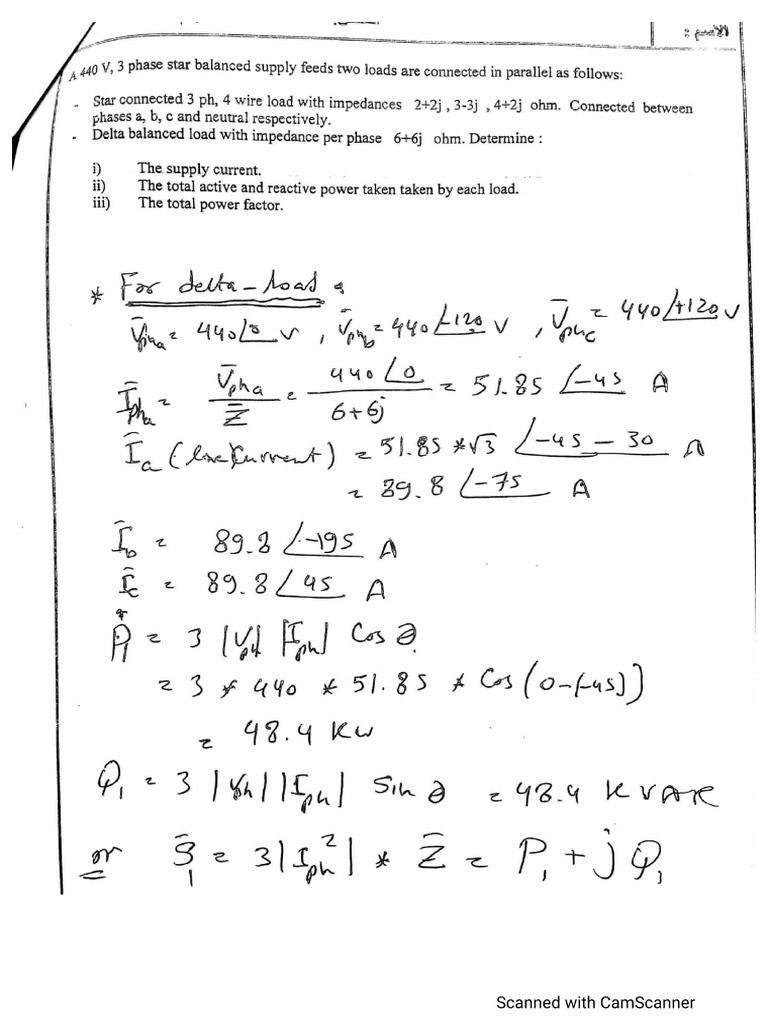 A 440 V, 3 phase star balanced supply feeds two loads are connected in parallel as follows:
- Star connected 3 ph, 4 wire load with impedances 2+2j , 3-3j , 4+2j ohm. Connected between
phases a, b, c and neutral respectively.
- Delta balanced load with impedance per phase 6+6j ohm. Determine :
i) The supply current.
ii) The total active and reactive power taken taken by each load.
iii) The total power factor.
* For delta-load :
V̄pha = 440∠0 V , V̄phb = 440∠-120 V , V̄phc = 440∠+120 V
Īpha = V̄pha / Z̄ = 440∠0 / 6+6j = 51.85 ∠-45 A
Īa (line current) = 51.85 *√3 ∠-45 - 30 A
= 89.8 ∠-75 A
Īb = 89.8 ∠-195 A
Īc = 89.8 ∠45 A
* P1 = 3 |Vph| |Iph| Cos θ
= 3 * 440 * 51.85 * Cos (0-(-45))
= 48.4 KW
Q1 = 3 |Vph| |Iph| Sin θ = 48.4 KVAR
or S̄1 = 3|Iph²| * Z̄ = P1 + j Q1
Scanned with CamScanner